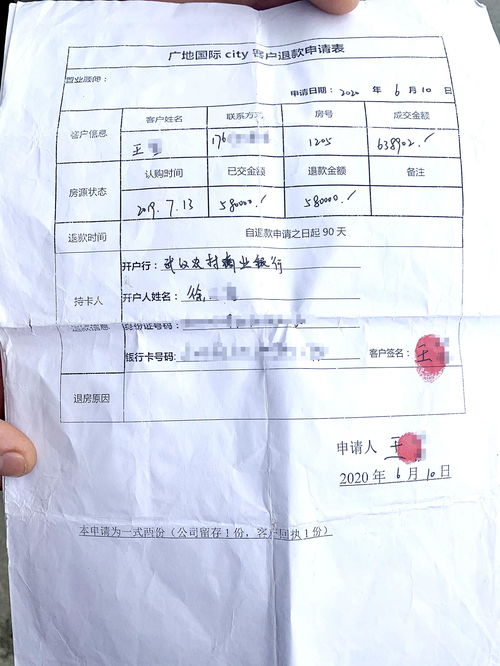 广地国际city客户退款申请表
置业顾问：
申请日期：2020 年 6 月 10 日
客户信息 客户姓名 联系方式 房号 成交金额
王 176 1205 638902.
房源状态 认购时间 已交金额 退款金额 备注
2019.7.13 580000. 580000.
退款时间 自退款申请之日起90天
开户行：武汉农村商业银行
持卡人 开户人姓名：徐
退款信息 身份证号码：
银行卡号码: 客户签名：王
退房原因
申请人 王
2020 年 6 月 10 日
本申请为一式两份（公司留存1份，客户回执1份）